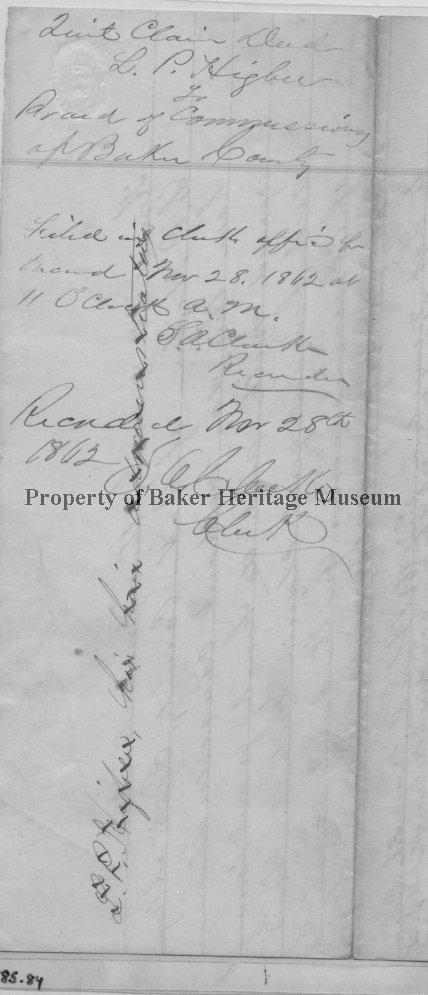 Quit Claim Deed
L. P. Higbee
To
Board of Commissioners
of Baker County
Filed in Clerks office for
record Nov 28, 1862 at
11 O'Clock A.M.
S. A. Clarke
Recorder
Recorded Nov 28th
1862
S. A. Clarke
Clerk
Property of Baker Heritage Museum
L. P. Higbee, his heirs
85.84